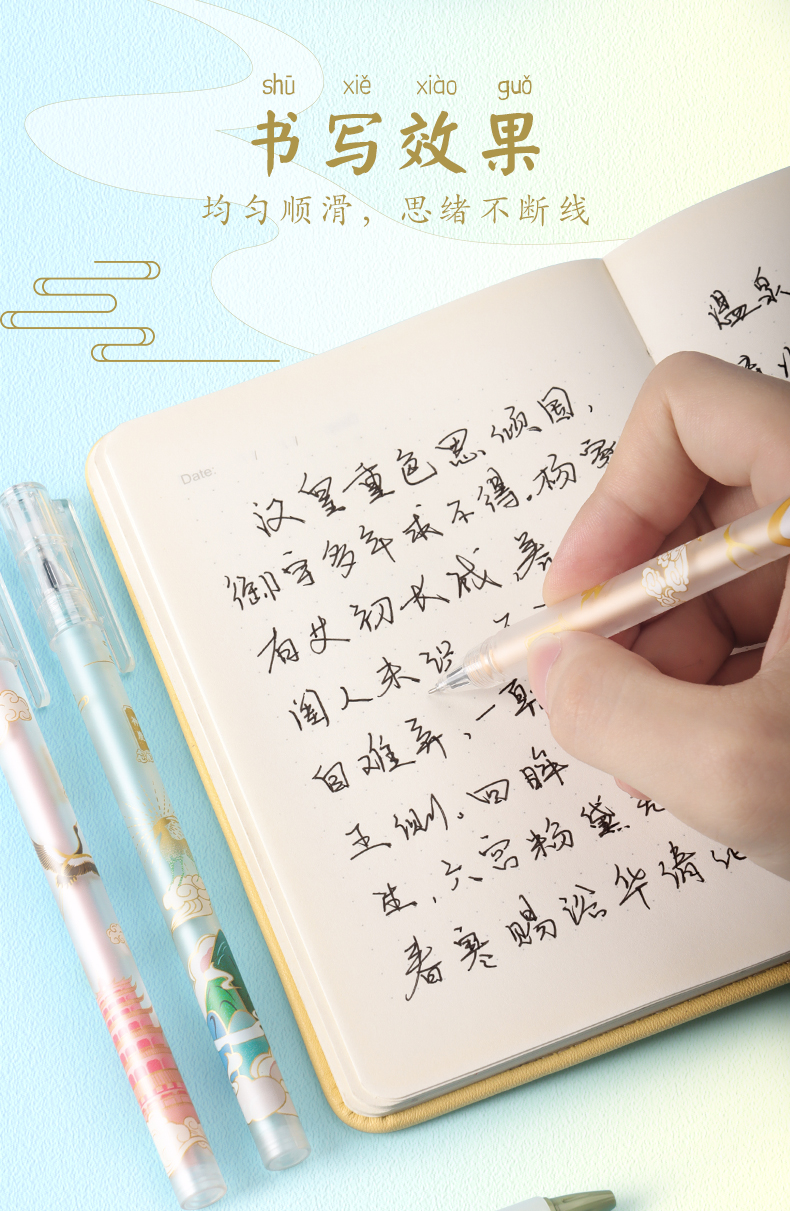 shū xiě xiào guǒ
书写效果
均匀顺滑，思绪不断线
Date:
汉皇重色思倾国，
御宇多年求不得.杨家
有女初长成 养
闺人未识
自难弃，一朝
王侧.回眸
生，六宫粉黛无
春寒赐浴华清池
温泉